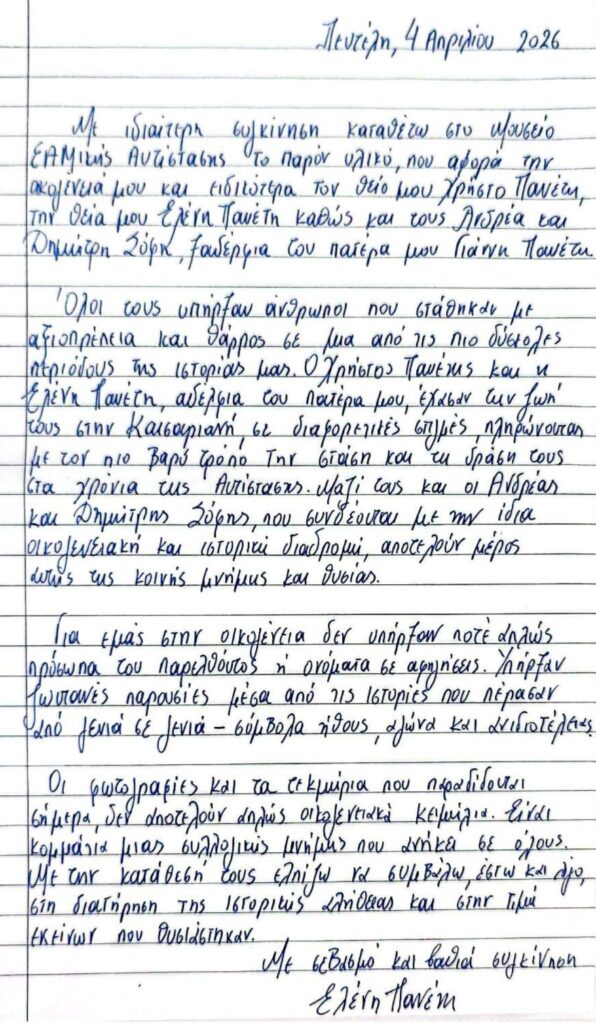 Πεντέλη, 4 Απριλίου 2026
Με ιδιαίτερη συγκίνηση καταθέτω στο Μουσείο
ΕΑΜικής Αντίστασης το παρόν υλικό, που αφορά την
οικογένειά μου και ειδικότερα τον θείο μου Χρήστο Πανέτη,
την θεία μου Ελένη Πανέτη καθώς και τους Ανδρέα και
Δημήτρη Ζύφη, ξαδέρφια του πατέρα μου Γιάννη Πανέτη.
Όλοι τους υπήρξαν άνθρωποι που στάθηκαν με
αξιοπρέπεια και θάρρος σε μια από τις πιο δύσκολες
περιόδους της ιστορίας μας. Ο Χρήστος Πανέτης και η
Ελένη Πανέτη, αδέλφια του πατέρα μου, έχασαν την ζωή
τους στην Καισαριανή, σε διαφορετικές στιγμές, πληρώνοντας
με τον πιο βαρύ τρόπο την στάση και τη δράση τους
στα χρόνια της Αντίστασης. Μαζί τους και οι Ανδρέας
και Δημήτρης Ζύφης, που συνδέονται με την ίδια
οικογενειακή και ιστορική διαδρομή, αποτελούν μέρος
αυτής της κοινής μνήμης και θυσίας.
Για εμάς στην οικογένεια δεν υπήρξαν ποτέ απλώς
πρόσωπα του παρελθόντος ή ονόματα σε αφηγήσεις. Υπήρξαν
ζωντανές παρουσίες μέσα από τις ιστορίες που πέρασαν
από γενιά σε γενιά – σύμβολα ήθους, αγώνα και ανιδιοτέλειας.
Οι φωτογραφίες και τα τεκμήρια που παραδίδονται
σήμερα, δεν αποτελούν απλώς οικογενειακά κειμήλια. Είναι
κομμάτια μιας συλλογικής μνήμης που ανήκει σε όλους.
Με την κατάθεσή τους ελπίζω να συμβάλω, έστω και λίγο,
στη διατήρηση της ιστορικής αλήθειας και στην τιμή
εκείνων που θυσιάστηκαν.
Με σεβασμό και βαθιά συγκίνηση
Ελένη Πανέτη